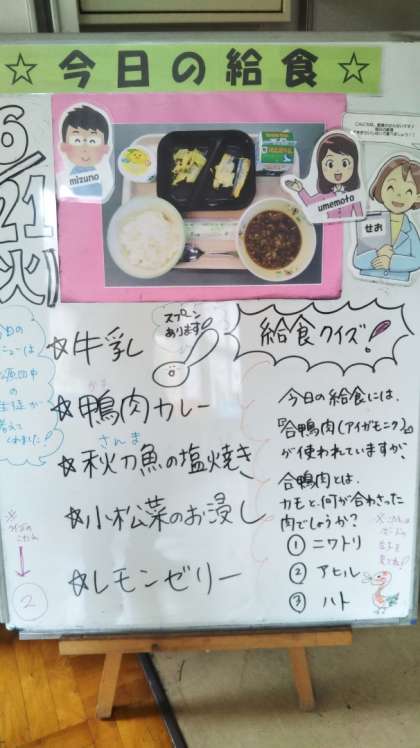 ☆今日の給食☆
6/21
(火)
mizuno
umemoto
せお
スプーン
あります!
☆牛乳
かも
☆鴨肉カレー
さんま
☆秋刀魚の塩焼き
☆小松菜のお浸し
☆レモンゼリー
給食クイズ!
今日の給食には、
『合鴨肉(アイガモニク)』
が使われていますが、
合鴨肉とは、
カモと、何が合わさった
肉でしょうか?
① ニワトリ
② アヒル
③ ハト
今日の
生徒が
考えて
くれました!
※
クイズの
こたえ
②